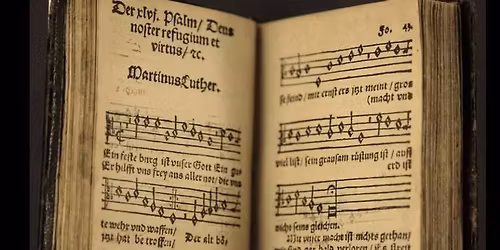 Der xlvj. Psalm/ Deus
noster refugium et
virtus/ ꝛc.
Martinus Luther.
Ein feste burg ist vnser Gott Ein gu
Er hilfft vns frey aus aller not/ die vns
te wehr vnd waffen/
itzt hat be troffen/ Der alt bö/
Fo. 43.
se feind/ mit ernst ers jtzt meint/ gros
(macht vnd
viel list/ sein grausam rüstung ist/ auff
erd ist
nicht seins gleichen.
Mit vnser macht ist nichts gethan/
wir sind gar bald verloren/ Es